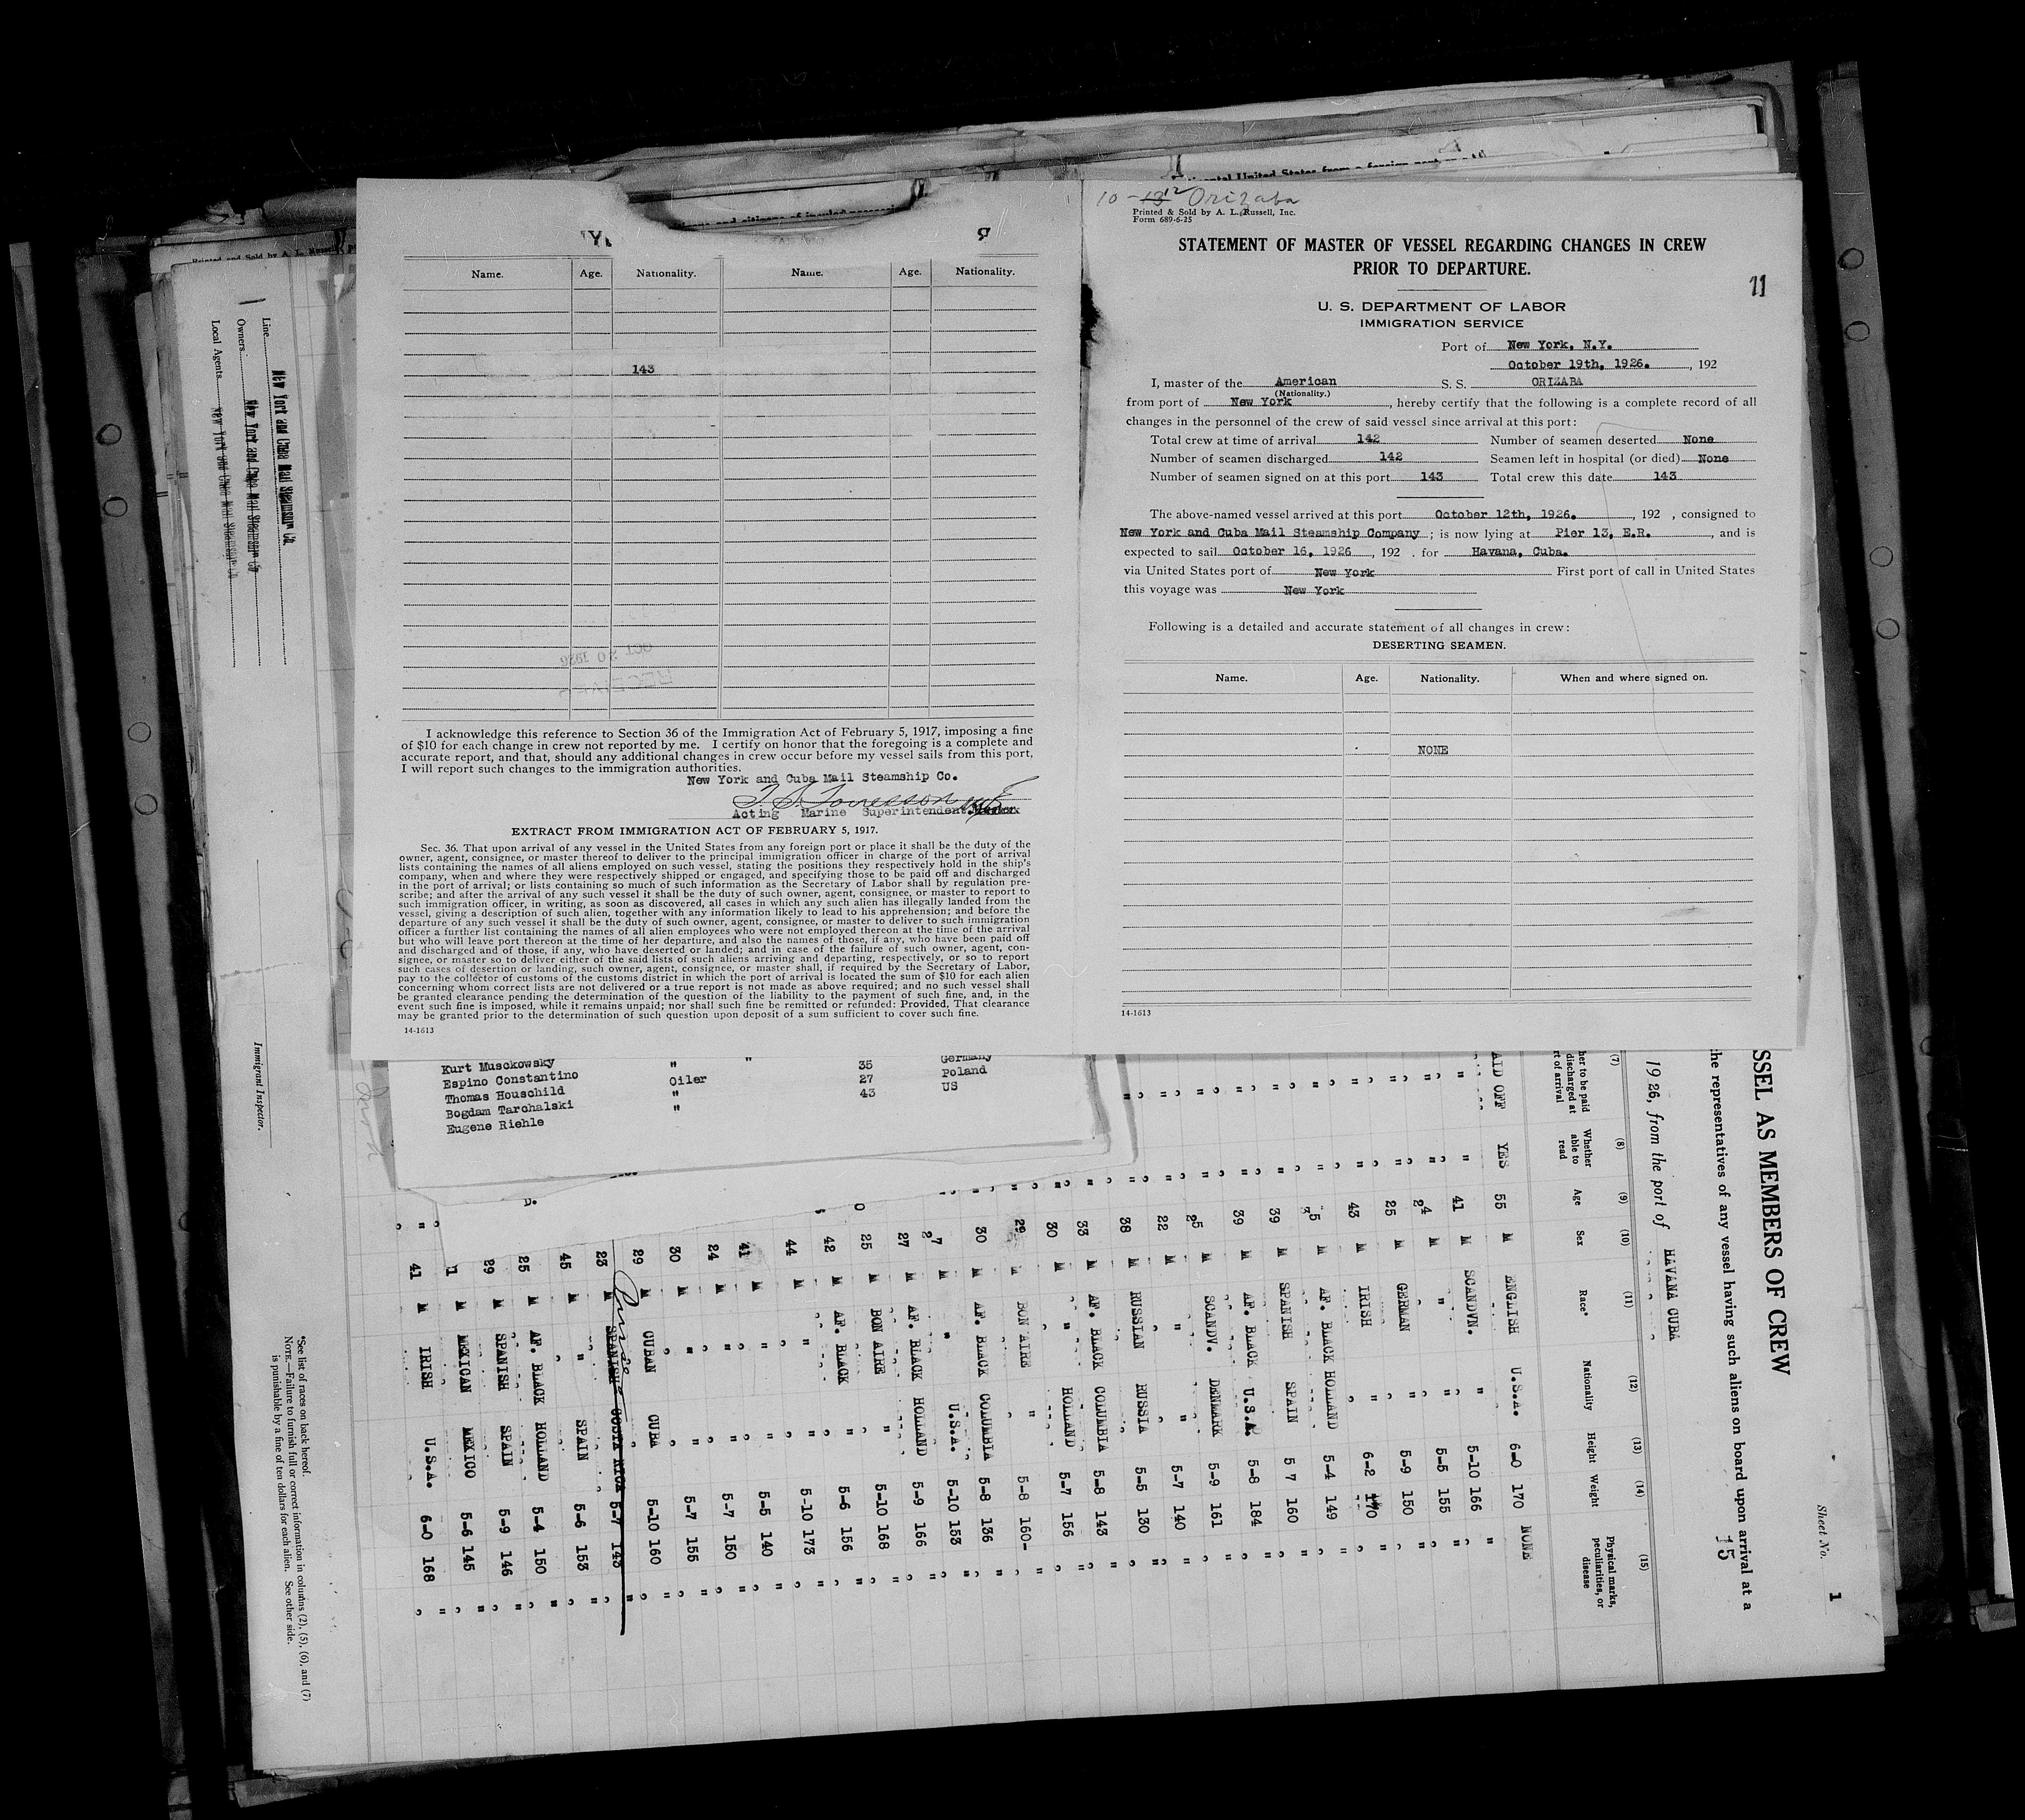 10-13 12 Orizaba
Printed & Sold by A. L. Russell, Inc.
Form 689-6-25
STATEMENT OF MASTER OF VESSEL REGARDING CHANGES IN CREW
PRIOR TO DEPARTURE.
11
U. S. DEPARTMENT OF LABOR
IMMIGRATION SERVICE
Port of New York, N.Y.
October 19th, 1926. , 192
I, master of the American S. S. ORIZABA
(Nationality.)
from port of New York , hereby certify that the following is a complete record of all
changes in the personnel of the crew of said vessel since arrival at this port:
Total crew at time of arrival 142 Number of seamen deserted None
Number of seamen discharged 142 Seamen left in hospital (or died) None
Number of seamen signed on at this port 143 Total crew this date 143
The above-named vessel arrived at this port October 12th, 1926. , 192 , consigned to
New York and Cuba Mail Steamship Company ; is now lying at Pier 13, E.R. , and is
expected to sail October 16, 1926 , 192 . for Havana, Cuba.
via United States port of New York First port of call in United States
this voyage was New York
Following is a detailed and accurate statement of all changes in crew:
DESERTING SEAMEN.
Name. Age. Nationality. When and where signed on.
NONE
14-1613
Name. Age. Nationality. Name. Age. Nationality.
143
OCT 20 1926
I acknowledge this reference to Section 36 of the Immigration Act of February 5, 1917, imposing a fine
of $10 for each change in crew not reported by me. I certify on honor that the foregoing is a complete and
accurate report, and that, should any additional changes in crew occur before my vessel sails from this port,
I will report such changes to the immigration authorities.
New York and Cuba Mail Steamship Co.
Acting Marine Superintendent. Master
EXTRACT FROM IMMIGRATION ACT OF FEBRUARY 5, 1917.
Sec. 36. That upon arrival of any vessel in the United States from any foreign port or place it shall be the duty of the
owner, agent, consignee, or master thereof to deliver to the principal immigration officer in charge of the port of arrival
lists containing the names of all aliens employed on such vessel, stating the positions they respectively hold in the ship's
company, when and where they were respectively shipped or engaged, and specifying those to be paid off and discharged
in the port of arrival; or lists containing so much of such information as the Secretary of Labor shall by regulation pre-
scribe; and after the arrival of any such vessel it shall be the duty of such owner, agent, consignee, or master to report to
such immigration officer, in writing, as soon as discovered, all cases in which any such alien has illegally landed from the
vessel, giving a description of such alien, together with any information likely to lead to his apprehension; and before the
departure of any such vessel it shall be the duty of such owner, agent, consignee, or master to deliver to such immigration
officer a further list containing the names of all alien employees who were not employed thereon at the time of the arrival
but who will leave port thereon at the time of her departure, and also the names of those, if any, who have been paid off
and discharged and of those, if any, who have deserted or landed; and in case of the failure of such owner, agent, con-
signee, or master so to deliver either of the said lists of such aliens arriving and departing, respectively, or so to report
such cases of desertion or landing, such owner, agent, consignee, or master shall, if required by the Secretary of Labor,
pay to the collector of customs of the customs district in which the port of arrival is located the sum of $10 for each alien
concerning whom correct lists are not delivered or a true report is not made as above required; and no such vessel shall
be granted clearance pending the determination of the question of the liability to the payment of such fine, and, in the
event such fine is imposed, while it remains unpaid; nor shall such fine be remitted or refunded: Provided, That clearance
may be granted prior to the determination of such question upon deposit of a sum sufficient to cover such fine.
14-1613
Kurt Musckowsky " " 35 Germany
Espino Constantino Oiler 27 Poland
Thomas Houschild " 43 US
Bogdam Tarchalski "
Eugene Riehle
Sheet No. 1
SSEL AS MEMBERS OF CREW
the representatives of any vessel having such aliens on board upon arrival at a
15
1926, from the port of HAVANA CUBA
(7) (8) (9) (10) (11) (12) (13) (14) (15)
her to be paid discharged at rt of arrival Whether able to read Age Sex Race* Nationality Height Weight Physical marks, peculiarities, or disease
AID OFF YES 55 M ENGLISH U.S.A. 6-0 170 NONE
" " 41 M SCANDVN. " 5-10 166 "
" " 24 M " " 5-5 155 "
" " 25 M GERMAN " 5-9 150 "
" " 43 M IRISH " 6-2 170 "
" " 35 M AF. BLACK HOLLAND 5-4 149 "
" " 39 M SPANISH SPAIN 5 7 160 "
" " 39 M AF. BLACK U.S.A. 5-8 184 "
" " 25 M SCANDV. DENMARK 5-9 161 "
" " 22 M " " 5-7 140 "
" " 38 M RUSSIAN RUSSIA 5-5 130 "
" 33 M AF. BLACK COLUMBIA 5-8 143 "
" 30 M " HOLLAND 5-7 156 "
" 29 M BON AIRE " 5-8 160- "
" 30 M AF. BLACK COLUMBIA 5-8 136 "
" 27 M " U.S.A. 5-10 153 "
27 M AF. BLACK HOLLAND 5-9 166 "
25 M BON AIRE " 5-10 168 "
42 M AF. BLACK " 5-6 156 "
44 M " " 5-10 173 "
41 M " " 5-5 140 "
24 M " " 5-7 150 "
30 M " " 5-7 155 "
29 M CUBAN CUBA 5-10 160 "
23 M SPANISH COSTA RICA 5-7 143 "
45 M " SPAIN 5-6 153 "
25 M AF. BLACK HOLLAND 5-4 150 "
29 M SPANISH SPAIN 5-9 146 "
M MEXICAN MEXICO 5-6 145 "
41 M IRISH U.S.A. 6-0 168 "
*See list of races on back hereof.
NOTE.—Failure to furnish full or correct information in columns (2), (5), (6), and (7)
is punishable by a fine of ten dollars for each alien. See other side.
Immigrant Inspector.
Line New York and Cuba Mail Steamship Co.
Owners New York and Cuba Mail Steamship Co.
Local Agents New York and Cuba Mail Steamship Co.